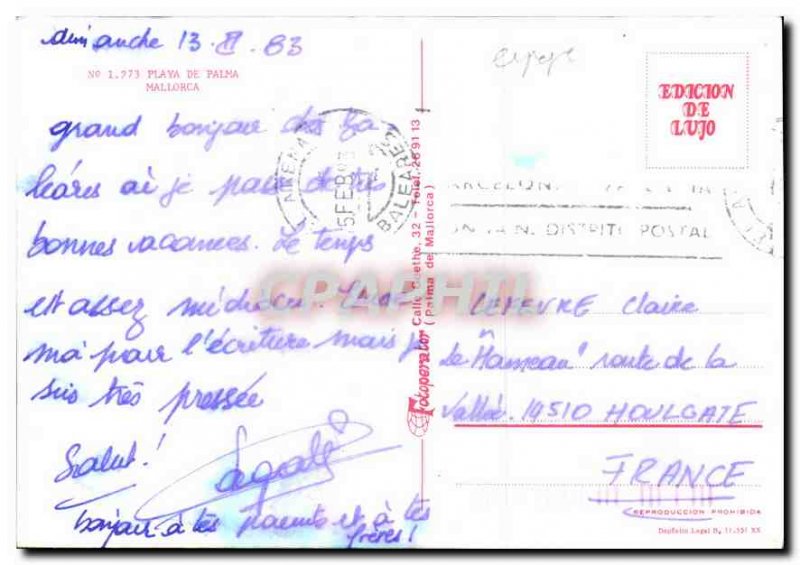 dimanche 13. II. 83
Nº 1.973 PLAYA DE PALMA
MALLORCA
grand bonjour des Ba
léares où je passe de très
bonnes vacances. Le temps
est assez médiocre. Excuse
moi pour l'écriture mais je
suis très pressée
Salut!
bonjour à tes parents et à tes
frères!
espagne
EDICION
DE
LUJO
L'ARENAL
15 FEB 83
BALEARES
BARCELONA
DISTRITO POSTAL
Fotoperator Calle Goethe, 32 - Telef. 28 91 13
(Palma de Mallorca)
CPAPHIL
LEFEVRE Claire
"Le Hameau" route de la
Vallée. 14510 HOULGATE
FRANCE
REPRODUCCION PROHIBIDA
Depósito Legal B.